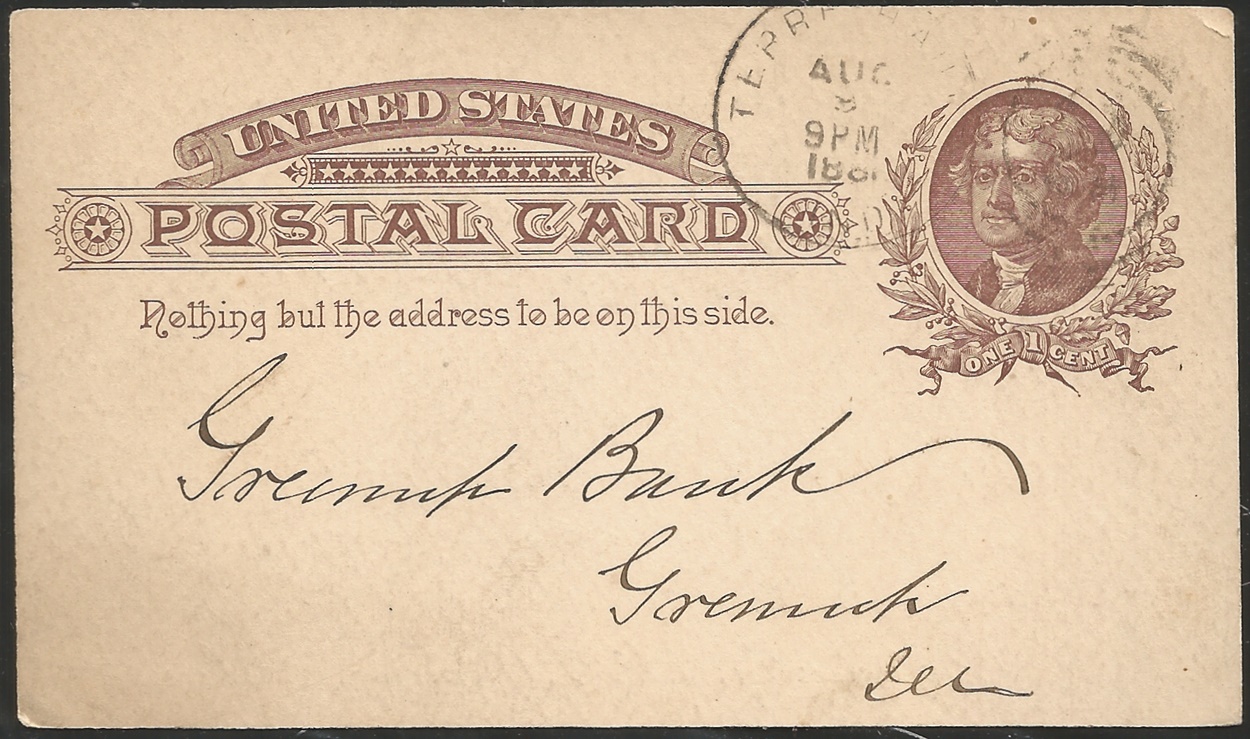 UNITED STATES
POSTAL CARD
Nothing but the address to be on this side.
TERRE
AUG
8
9PM
188
ONE 1 CENT
Greenup Bank
Greenup
Ill